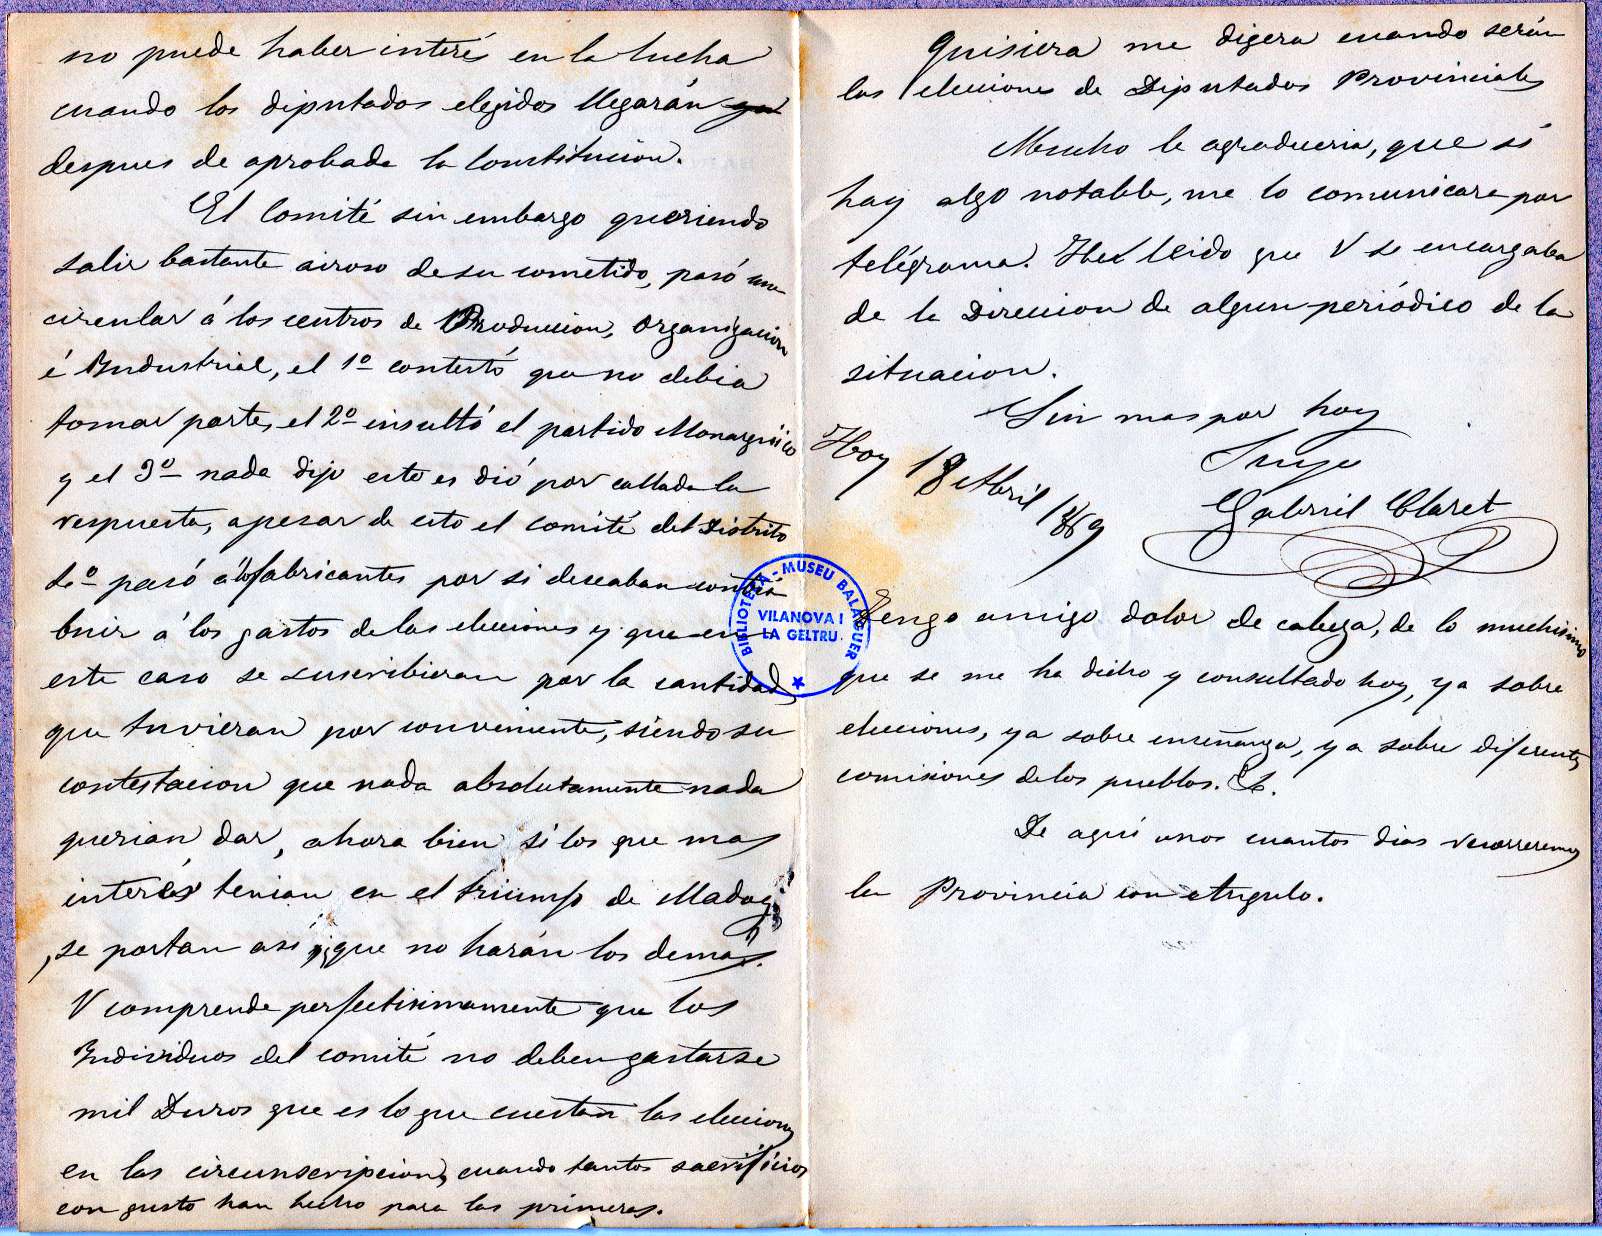 no puede haber interés en la lucha
cuando los diputados elegidos llegarán ya
despues de aprobada la Constitucion.
El Comité sin embargo queriendo
salir bastante airoso de su cometido, pasó una
circular á los centros de Produccion, Organizacion
é Industrial, el 1º contestó que no debia
tomar parte, el 2º insultó el partido Monarquico
y el 3º nada dijo esto es dió por callada la
respuesta, apesar de esto el comité del Distrito
pasó á los fabricantes por si deseaban contri
buir á los gastos de las elecciones y que en
este caso se suscribieran por la cantidad
que tuvieran por conveniente, siendo su
contestacion que nada absolutamente nada
querian dar, ahora bien si los que mas
interés tenian en el triumfo de Madoz
se portan asi que no harán los demás.
V comprende perfectisimamente que los
Individuos del comité no deben gastarse
mil Duros que es lo que cuestan las elecciones
en las circunscripciones, cuando tantos sacrificios
con gusto han hecho para las primeras.
Quisiera me digera cuando serán
las elecciones de Diputados Provinciales
Mucho le agradeceria, que si
hay algo notable, me lo comunicara por
telégrama. He leido que V se encargaba
de la Direccion de algun periódico de la
situacion.
Sin mas por hoy
Suyo
Hoy 18 Abril 1869
Gabriel Claret
BIBLIOTECA-MUSEU BALAGUER
VILANOVA I
LA GELTRU
Tengo amigo dolor de cabeza, de lo muchisimo
que se me ha dicho y consultado hoy, ya sobre
elecciones, ya sobre enseñanza, ya sobre diferentes
comisiones de los pueblos. &.
De aqui unos cuantos dias recorreremos
la Provincia con Angulo.